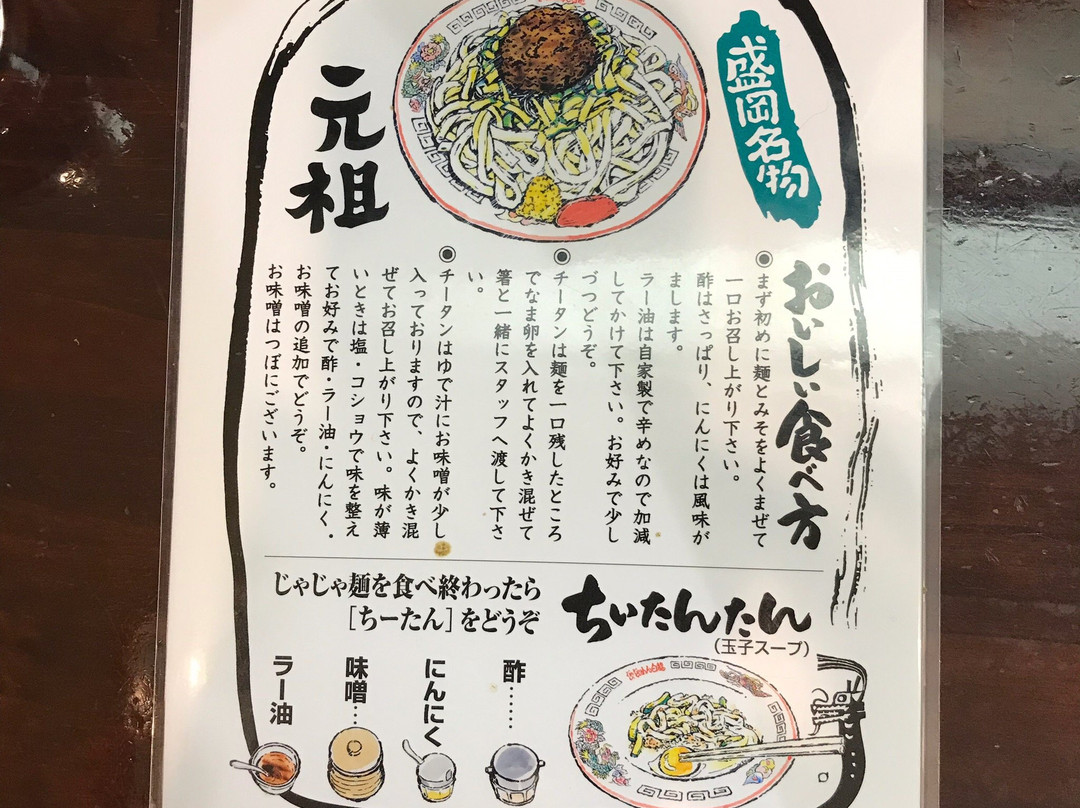 盛岡名物
元祖
おいしい食べ方
◉まず初めに麺とみそをよくまぜて
一口お召し上がり下さい。
酢はさっぱり、にんにくは風味が
まします。
ラー油は自家製で辛めなので加減
してかけて下さい。お好みで少し
づつどうぞ。
◉チータンは麺を一口残したところ
でなま卵を入れてよくかき混ぜて
箸と一緒にスタッフへ渡して下さ
い。
◉チータンはゆで汁にお味噌が少し
入っておりますので、よくかき混
ぜてお召し上がり下さい。味が薄
いときは塩・コショウで味を整え
てお好みで酢・ラー油・にんにく・
お味噌の追加でどうぞ。
お味噌はつぼにございます。
じゃじゃ麺を食べ終わったら
［ちーたん］をどうぞ
ちいたんたん
（玉子スープ）
酢……
にんにく
味噌…
ラー油